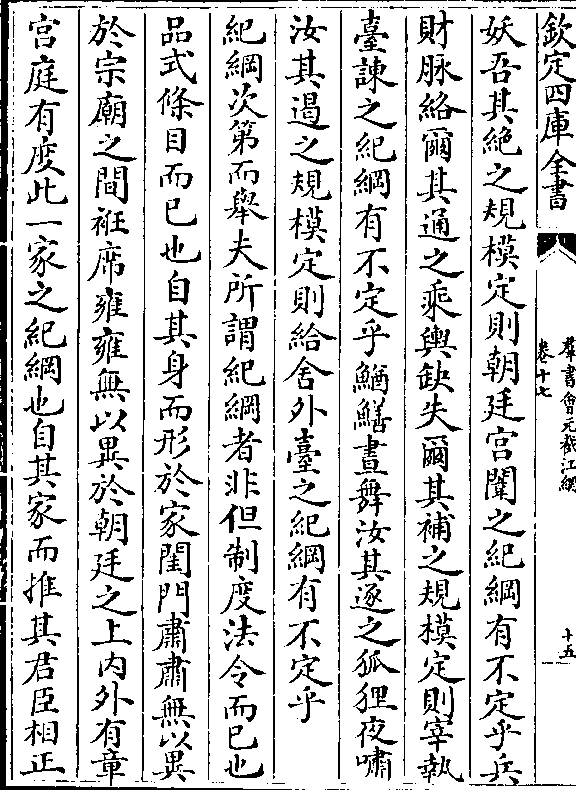 欽定四庫全書
羣書會元截江網
卷十七
十五
妖吾其絶之規模定則朝廷宫闈之紀綱有不定乎兵
財脉絡爾其通之乘輿缺失爾其補之規模定則宰執
臺諫之紀綱有不定乎鰌鱔晝舞汝其逐之狐狸夜嘯
汝其遏之規模定則給舍外臺之紀綱有不定乎
紀綱次第而舉夫所謂紀綱者非但制度法令而已也
品式條目而已也自其身而形於家閨門肅肅無以異
於宗廟之間袵席雍雍無以異於朝廷之上内外有章
宫庭有度此一家之紀綱也自其家而推其君臣相正